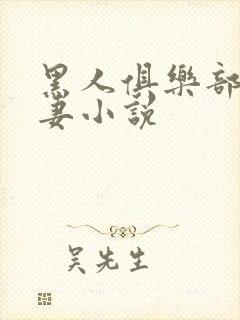 黑人俱樂部
妻小說
吳先生